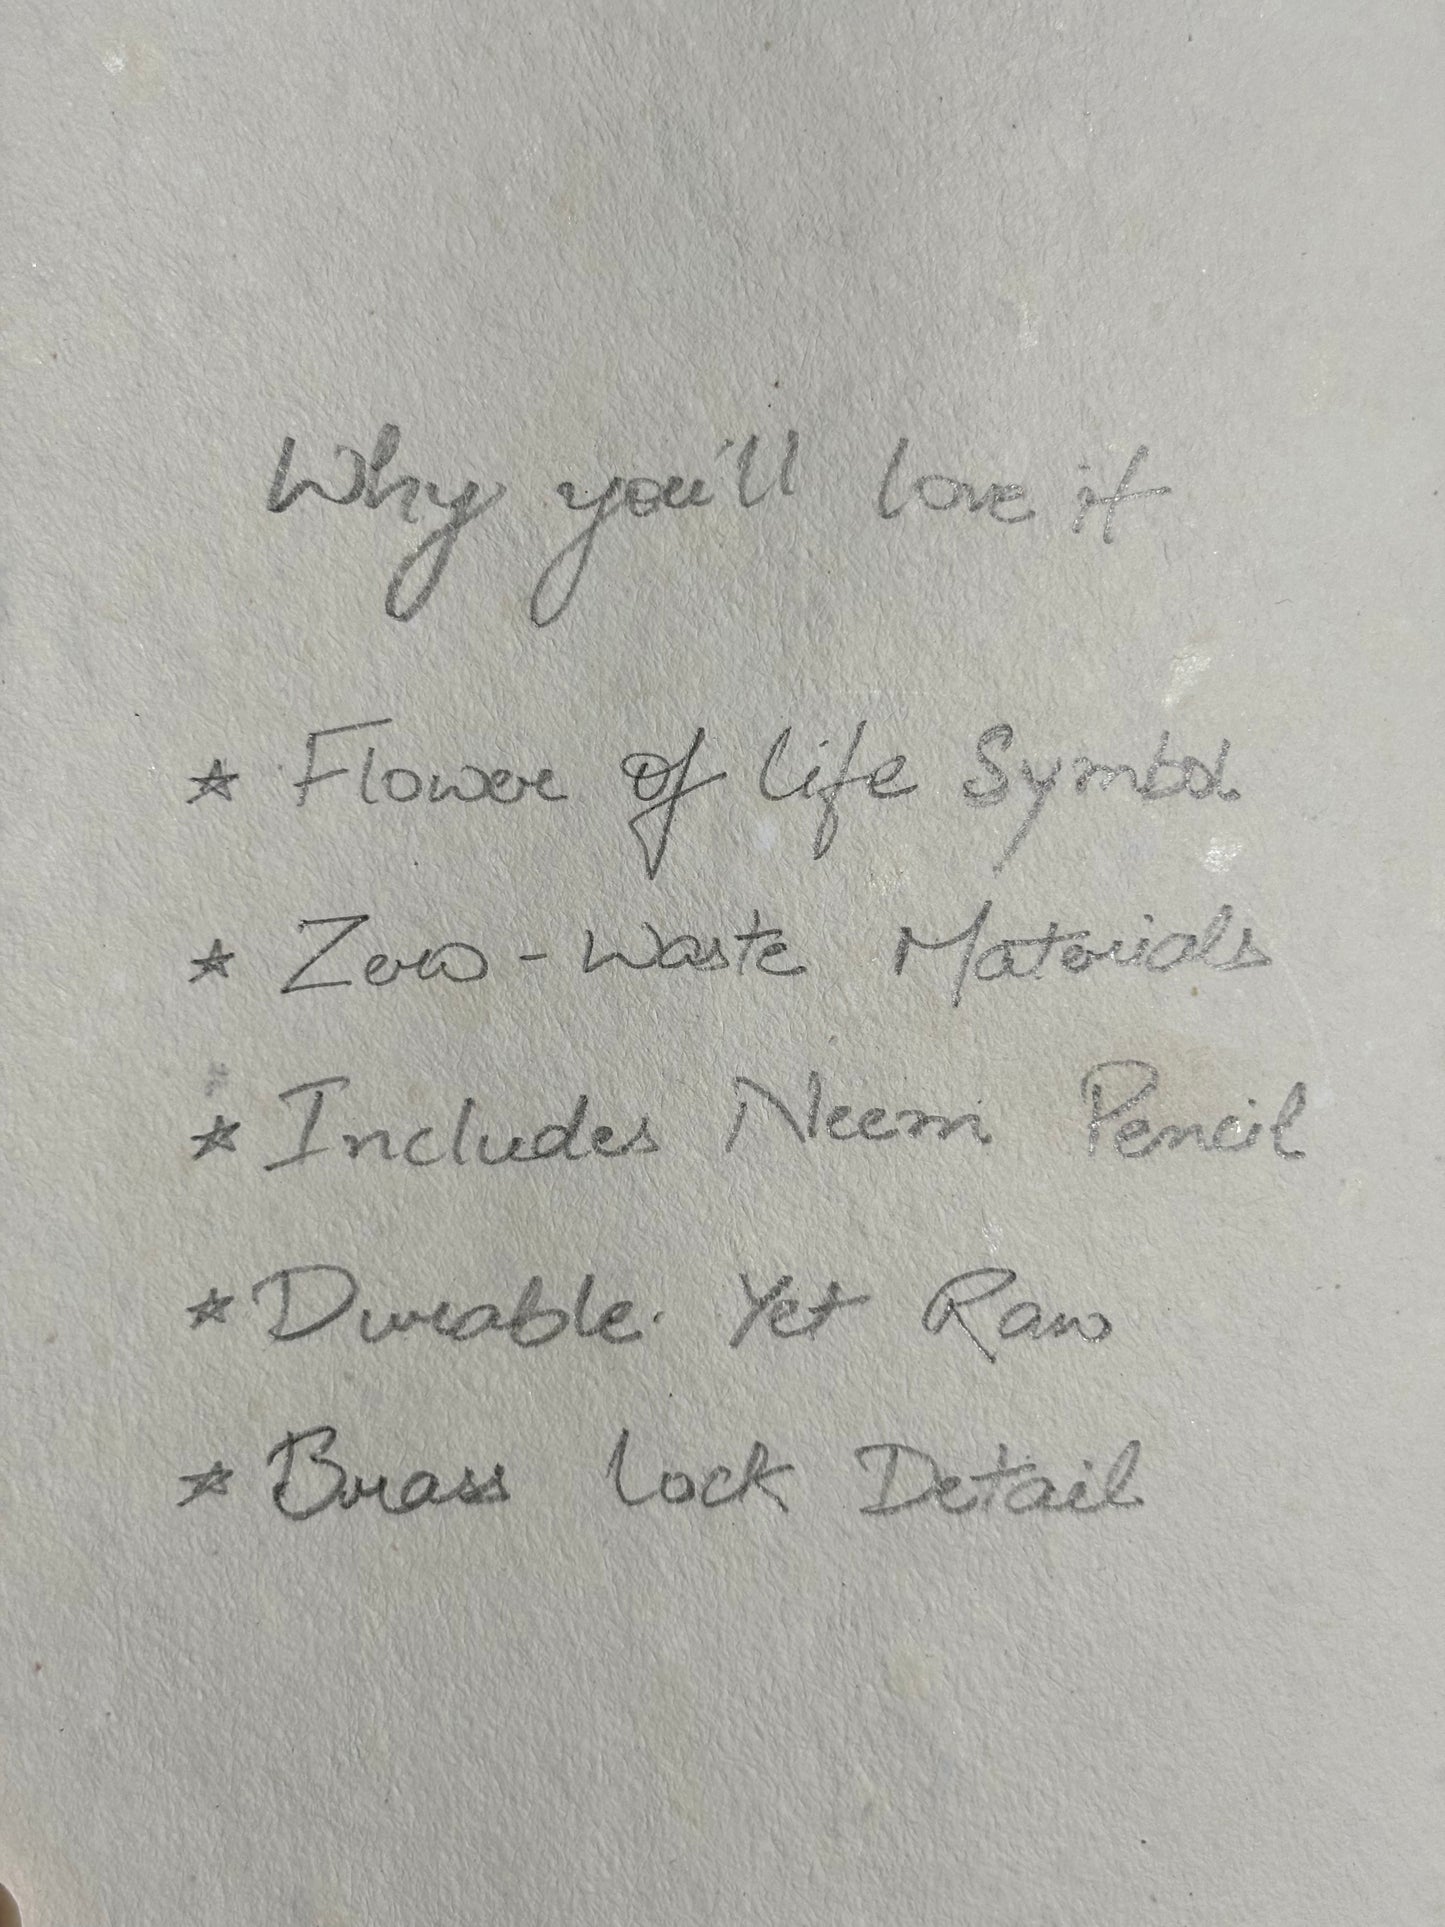 Why you'll love it
☆ Flower of life Symbol.
☆ Zero-Waste Materials
☆ Includes Neem Pencil
☆ Durable. Yet Raw
☆ Brass Lock Detail